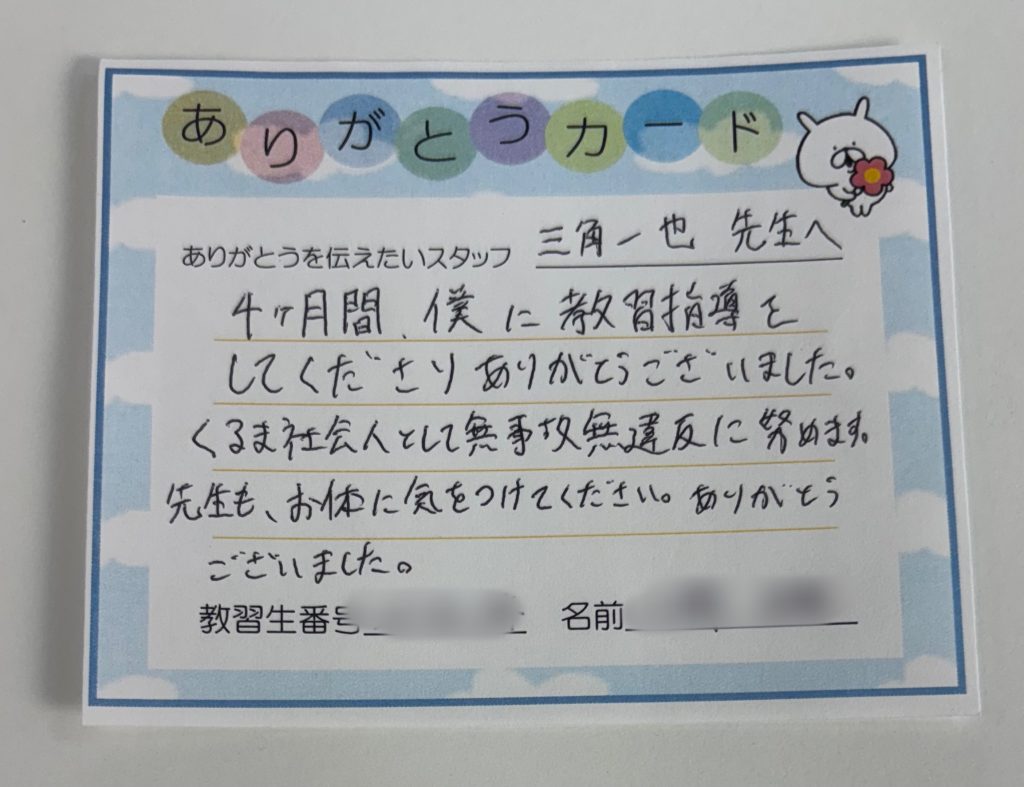 ありがとうカード
ありがとうを伝えたいスタッフ 三角一也 先生へ
4ヶ月間、僕に教習指導を
してくださりありがとうございました。
くるま社会人として無事故無違反に努めます。
先生も、お体に気をつけてください。ありがとう
ございました。
教習生番号 名前